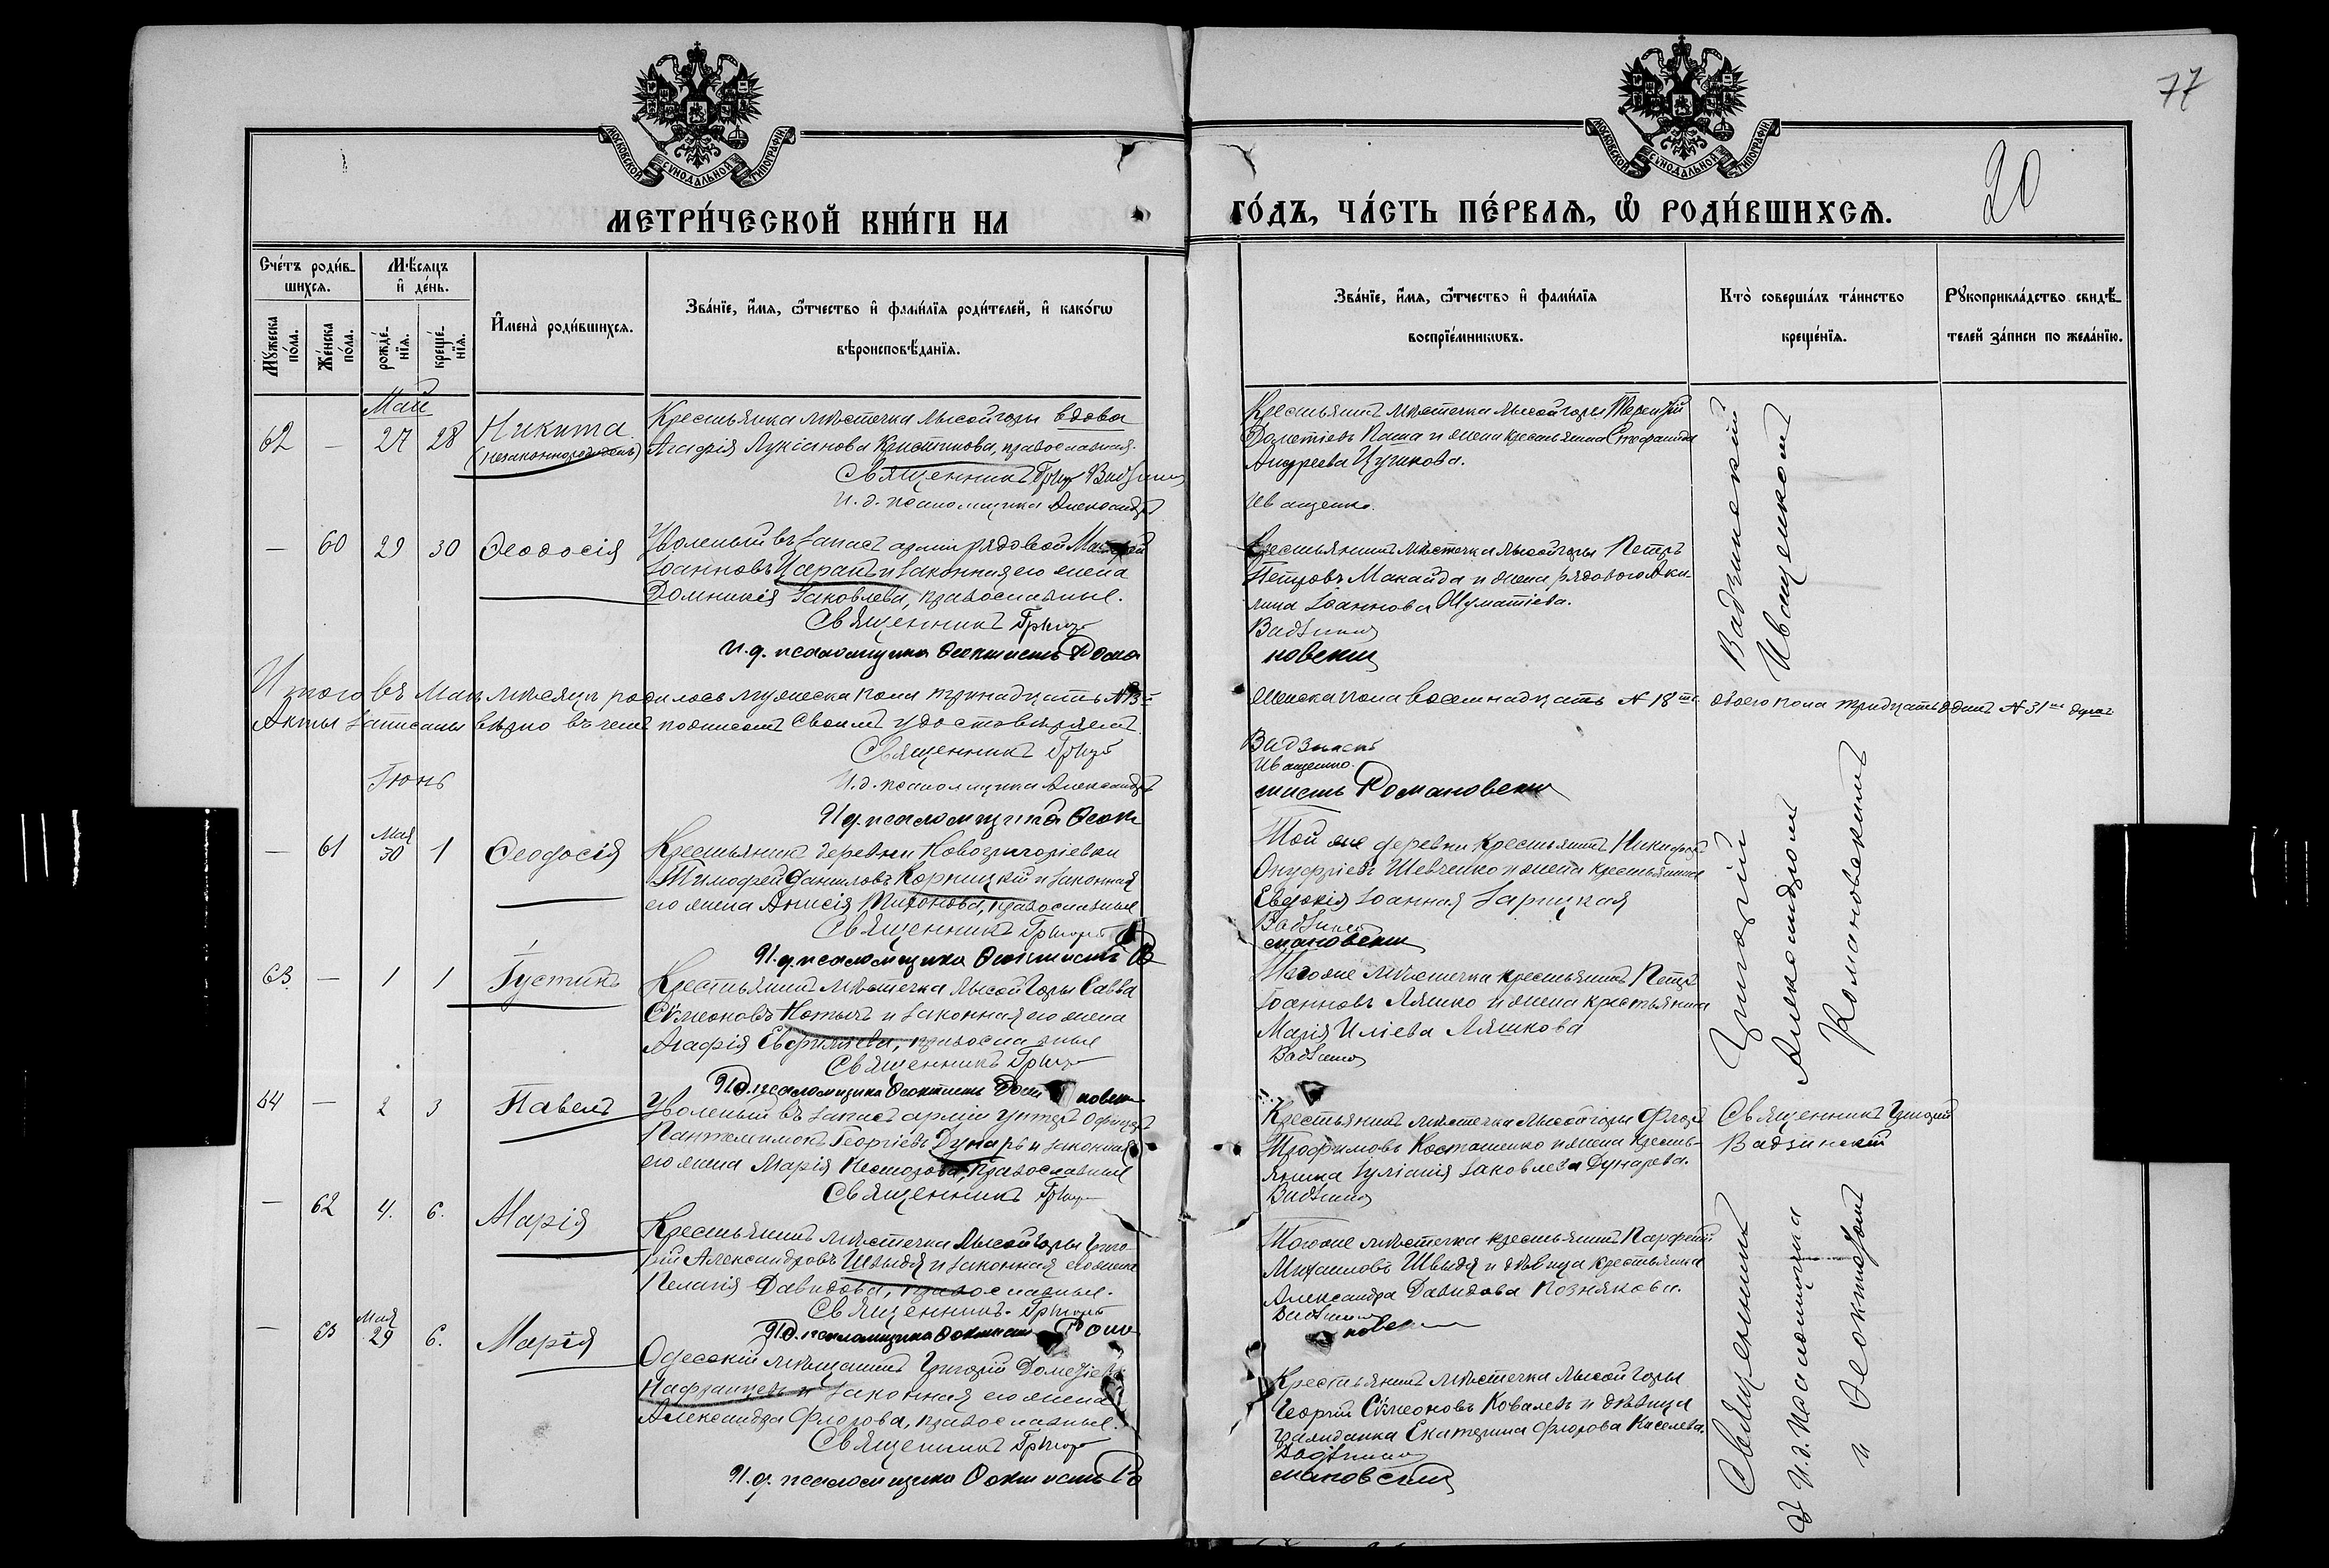 77
20
МОСКОВСКОЙ СѴНОДАЛЬНОЙ ТИПОГРАФІИ
МОСКОВСКОЙ СѴНОДАЛЬНОЙ ТИПОГРАФІИ
МЕТРИ́ЧЕСКОЙ КНИ́ГИ НА ГО́ДЪ, ЧА́СТЬ ПЕ́РВАЯ, Ѽ РОДИ́ВШИХСЯ.
Сче́тъ роди́вшихся.
Мꙋ́жеска по́ла.
Же́нска по́ла.
Мѣ́сяцъ и҆ де́нь.
рожде́нїя.
креще́нїя.
И҆мена̀ роди́вшихся.
Зва́нїе, и҆́мя, ѻ҆́тчество и҆ фами́лїя роди́телей, и҆ како́гѡ вѣроисповѣ́данїя.
Зва́нїе, и҆́мя, ѻ҆́тчество и҆ фами́лїя воспрїе́мникѡвъ.
Кто̀ соверша́лъ та́инство креще́нїя.
Рꙋкоприкла́дство свидѣ́телей за́писи по жела́нїю.
Май
62 — 27 28 Никита (незаконнорожденъ)
Крестьянка мѣстечка Лысойгоры вдова
Агафія Лукіанова Кристинова, православная.
Священникъ Григ Вадзинскій
И. д. псаломщика Александръ Иващенко.
Крестьянинъ мѣстечка Лысойгоры Терентій
Дометіевъ Паша и жена крестьянина Стефанида
Андреева Цушкова.
— 60 29 30 Ѳеодосія
Уволеный въ запасъ арміи рядовой
Іоанновъ Царанъ и законная его жена
Домникія Іаковлева, православные.
Священникъ Григор Вадзинскій
И. д. псаломщика Ѳеоктистъ Романовскій
Крестьянинъ мѣстечка Лысойгоры Петръ
Петровъ Макайда и жена рядового Акилина Іоаннова Шуматіева.
Вадзинскій
Иващенко
Итого въ Маѣ мѣсяцѣ родилось мужеска пола тринадцать №13 женска пола восемнадцать № 18 обоего пола тридцать одинъ № 31 душъ
Акты записаны вѣрно въ чемъ подписомъ своимъ удостовѣряемъ.
Священникъ Григор Вадзинскій
И. д. псаломщика Александръ Иващенко.
И. д. псаломщика Ѳеоктистъ Романовскій
Іюнь
— 61 Мая 30 1 Ѳеодосія
Крестьянинъ деревни Новогригоріевки
Тимофей Даниловъ Корницкій и законная
его жена Анисія Тихонова, православные
Священникъ Григорій Вадзинскій
И. д. псаломщика Ѳеоктистъ Романовскій
Той же деревни крестьянинъ Никифоръ
Онуфріевъ Шевченко и жена крестьянина
Евдокія Іоанная Зарицкая
63 — 1 1 Іустинъ
Крестьянинъ мѣстечка Лысой Горы Савва
Сѵмеоновъ Котычъ и законная его жена
Агафія Евфиміева, православные
Священникъ Григор Вадзинскій
И. д. псаломщика Ѳеоктистъ Романовскій
Тогоже мѣстечка крестьянинъ Петръ
Іоанновъ Ляшко и жена крестьянина
Марія Иліева Ляшкова
64 — 2 3 Павелъ
Уволеный въ запасъ арміи унтеръ офицеръ
Пантелимонъ Георгіевъ Дунарь и законная
его жена Марія Несторова, православные
Священникъ Григор Вадзинскій
Крестьянинъ мѣстечка Лысойгоры Флоръ
Трофимовъ Косташенко и жена крестьянина Іуліанія Іаковлева Дунарева.
Священникъ Григорій
Вадзинскій
— 62 4. 6. Марія
Крестьянинъ мѣстечка Лысойгоры Григорій Александровъ Швыдя и законная его жена
Пелагія Давидова, православные.
Священникъ Григорій Вадзинскій
И. д. псаломщика Ѳеоктистъ Романовскій
Тогоже мѣстечка крестьянинъ Парфеній
Михаиловъ Швыдя и дѣвица крестьянка
Александра Давидова Познякова.
— 63 Мая 29 6. Марія
Одесскій мѣщанинъ Григорій
Нафранцевъ и законная его жена
Александра Флорова, православные.
Священникъ Григор Вадзинскій
И. д. псаломщика Ѳеоктистъ Романовскій
Крестьянинъ мѣстечка Лысой Горы
Георгій Сѵмеоновъ Ковалевъ и дѣвица
гражданка Екатерина Флорова Киселева.
Священникъ Григорій
И. д. псаломщика Александромъ
и Ѳеоктистомъ Романовскимъ